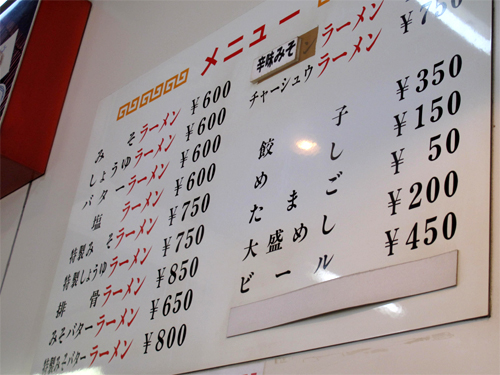 メニュー
みそラーメン ¥600
しょうゆラーメン ¥600
バターラーメン ¥600
塩ラーメン ¥600
特製みそラーメン ¥750
特製しょうゆラーメン ¥750
排骨ラーメン ¥850
みそバターラーメン ¥650
特製みそバターラーメン ¥800
辛味みそラーメン ¥
チャーシュウラーメン ¥750
餃子 ¥350
めし ¥150
たまご ¥50
大盛めし ¥200
ビール ¥450